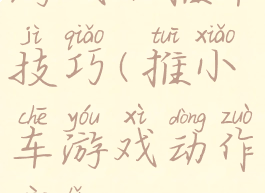 jì qiǎo tuī xiǎo
技巧(推小
chē yóu xì dòng zuò
车游戏动作